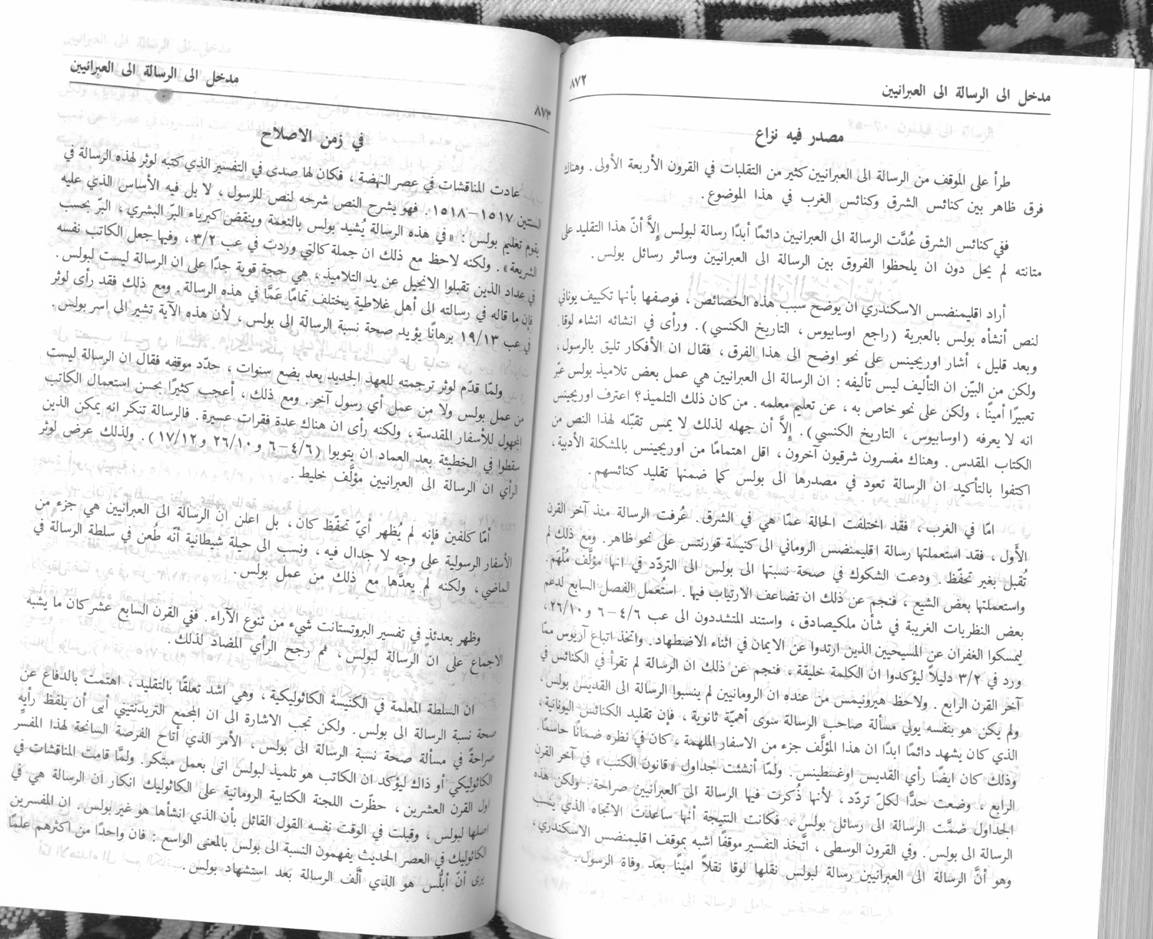 مدخل الى الرسالة الى العبرانيين
٨٧٢
مصدر فيه نزاع
طرأ على الموقف من الرسالة الى العبرانيين كثير من التقلبات في القرون الأربعة الأولى. وهناك
فرق ظاهر بين كنائس الشرق وكنائس الغرب في هذا الموضوع.
ففي كنائس الشرق عُدَّت الرسالة الى العبرانيين دائمًا أبدًا رسالة لبولس إلاَّ أنّ هذا التقليد على
متانته لم يحل دون ان يلحظوا الفروق بين الرسالة الى العبرانيين وسائر رسائل بولس.
أراد اقليمنضس الاسكندري ان يوضح سبب هذه الخصائص ، فوصفها بأنها تكييف يوناني
لنص أنشأه بولس بالعبرية (راجع اوسابيوس ، التاريخ الكنسي). ورأى في انشائه انشاء لوقا.
وبعد قليل ، أشار اوريجينس على نحو اوضح الى هذا الفرق ، فقال ان الأفكار تليق بالرسول،
ولكن من البيّن ان التأليف ليس تأليفه : ان الرسالة الى العبرانيين هي عمل بعض تلاميذ بولس عبّر
تعبيرًا أمينًا ، ولكن على نحو خاص به ، عن تعليم معلمه . من كان ذلك التلميذ؟ اعترف اوريجينس
انه لا يعرفه (اوسابيوس ، التاريخ الكنسي). إلاَّ أن جهله لذلك لا يمس تقبّله لهذا النص من
الكتاب المقدس. وهناك مفسرون شرقيون آخرون ، اقل اهتمامًا من اوريجينس بالمشكلة الأدبية ،
اكتفوا بالتأكيد ان الرسالة تعود في مصدرها الى بولس كما ضمنها تقليد كنائسهم .
امّا في الغرب، فقد اختلفت الحالة عمّا هي في الشرق. عُرفت الرسالة منذ آخر القرن
الأَول، فقد استعملتها رسالة اقليمنضس الروماني الى كنيسة قورنتس على نحو ظاهر. ومع ذلك لم
تُقبل بغير تحفّظ . ودعت الشكوك في صحة نسبتها الى بولس الى التردّد في انها مؤلَّف مُلهَم.
واستعملتها بعض الشيع ، فنجم عن ذلك ان تضاعف الارتياب فيها. استُعمل الفصل السابع لدعم
بعض النظريات الغريبة في شأن ملكيصادق ، واستند المتشددون الى عب ٤/٦ – ٦ و ٢٦/١٠،
ليمسكوا الغفران عن المسيحيين الذين ارتدوا عن الايمان في اثناء الاضطهاد. واتخذ اتباع آريوس ممّا
ورد في ٢/٣ دليلاً ليؤكدوا ان الكلمة خليقة ، فنجم عن ذلك ان الرسالة لم تقرأ في الكنائس في
آخر القرن الرابع . ولاحظ هيرونيمس من عنده ان الرومانيين لم ينسبوا الرسالة الى القديس بولس،
ولم يكن هو بنفسه يولي مسألة صاحب الرسالة سوى أهميّة ثانوية ، فإن تقليد الكنائس اليونانية،
الذي كان يشهد دائمًا ابدًا ان هذا المؤلَّف جزء من الاسفار الملهمة ، كان في نظره ضمانًا حاسمًا.
وذلك كان ايضًا رأي القديس اوغسطينس. ولمّا أنشئت جداول «قانون الكتب» في آخر القرن
الرابع ، وضعت حدًّا لكلّ تردد ، لأنها ذُكرت فيها الرسالة الى العبرانيين صراحة. ولكن هذه
الجداول ضمَّت الرسالة الى رسائل بولس ، فكانت النتيجة أنها ساعدت الاتجاه الذي ينسب
الرسالة الى بولس. وفي القرون الوسطى ، اتّخذ التفسير موقفًا اشبه بموقف اقليمنضس الاسكندري،
وهو أنَّ الرسالة الى العبرانيين رسالة لبولس نقلها لوقا نقلاً امينًا بعد وفاة الرسول.
مدخل الى الرسالة الى العبرانيين
٨٧٣
في زمن الاصلاح
عادت المناقشات في عصر النهضة ، فكان لها صدى في التفسير الذي كتبه لوثر لهذه الرسالة في
السنتين ١٥١٧–١٥١٨. فهو يشرح النص شرحه لنص للرسول ، لا بل فيه الأساس الذي عليه
يقوم تعليم بولس : «في هذه الرسالة يُشيد بولس بالنعمة وينقض كبرياء البرّ البشري ، البرّ بحسب
الشريعة». ولكنه لاحظ مع ذلك ان جملة كالتي وردت في عب ٣/٢ ، وفيها جعل الكاتب نفسه
في عداد الذين تقبلوا الانجيل عن يد التلاميذ ، هي حجة قوية جدًا على ان الرسالة ليست لبولس.
فإن ما قاله في رسالته الى أهل غلاطية يختلف تمامًا عمّا في هذه الرسالة. ومع ذلك فقد رأى لوثر
في عب ١٩/١٣ برهانًا يؤيد صحة نسبة الرسالة الى بولس ، لأن هذه الآية تشير الى اسر بولس.
ولمّا قدّم لوثر ترجمته للعهد الجديد بعد بضع سنوات ، حدّد موقفه فقال ان الرسالة ليست
من عمل بولس ولا من عمل أي رسول آخر. ومع ذلك ، أعجب كثيرًا بحسن استعمال الكاتب
المجهول للأسفار المقدسة ، ولكنه رأى ان هناك عدة فقرات عسيرة. فالرسالة تنكر انه يمكن الذين
سقطوا في الخطيئة بعد العماد ان يتوبوا (٤/٦–٦ و ٢٦/١٠ و ١٧/١٢). ولذلك عرض لوثر
الرأي ان الرسالة الى العبرانيين مؤلَّف خليط .
أمّا كلفين فإنه لم يُظهر أيّ تحفّظ كان ، بل اعلن ان الرسالة الى العبرانيين هي جزء من
الأسفار الرسولية على وجه لا جدال فيه ، ونسب الى حيلة شيطانية أنّه طُعن في سلطة الرسالة في
الماضي، ولكنه لم يعدَّها مع ذلك من عمل بولس .
وظهر بعدئذٍ في تفسير البروتستانت شيء من تنوع الآراء. ففي القرن السابع عشر كان ما يشبه
الاجماع على ان الرسالة لبولس ، ثم رجح الرأي المضاد لذلك.
ان السلطة المعلمة في الكنيسة الكاثوليكية ، وهي اشد تعلقًا بالتقليد ، اهتمت بالدفاع عن
صحة نسبة الرسالة الى بولس. ولكن تجب الاشارة الى ان المجمع التريدنتيني أبى أن يلفظ رأيه
صراحةً في مسألة صحة نسبة الرسالة الى بولس ، الأمر الذي أتاح الفرصة السانحة لهذا المفسر
الكاثوليكي أو ذاك ليؤكد ان الكاتب هو تلميذ لبولس اتى بعمل مبتكر. ولمّا قامت المناقشات في
اول القرن العشرين ، حظّرت اللجنة الكتابية الرومانية على الكاثوليك انكار ان الرسالة هي في
اصلها لبولس ، وقبلت في الوقت نفسه القول القائل بأن الذي انشأها هو غير بولس. ان المفسرين
الكاثوليك في العصر الحديث يفهمون النسبة الى بولس بالمعنى الواسع : فان واحدًا من اكثرهم علمًا
يرى أنّ أبلُّس هو الذي ألَّف الرسالة بعد استشهاد بولس.